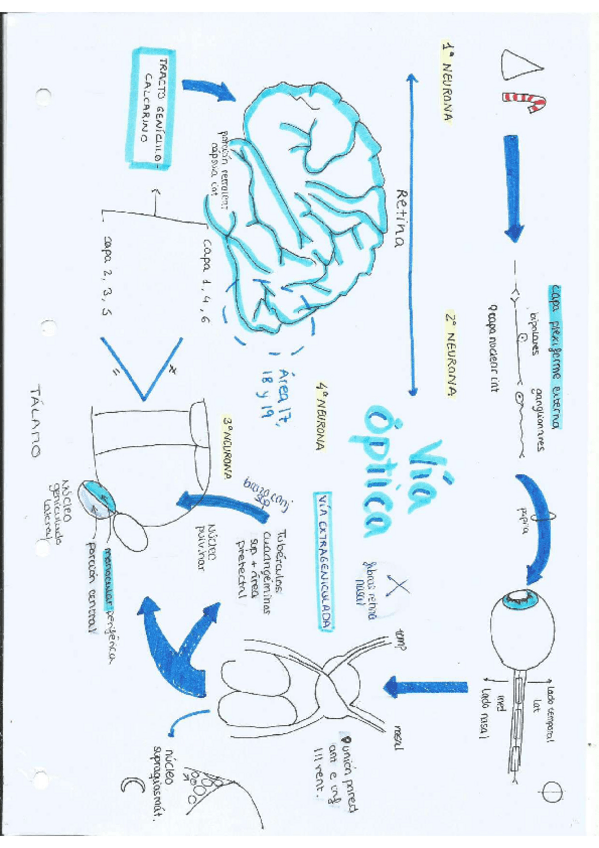 1ª NEURONA
Retina
2ª NEURONA
Capa plexiforme externa
bipolares
ganglionares
capa nuclear int
papila
lado temporal
lat
med
lado nasal
Vía
Óptica
fibras retina
nasal
temp
nasal
unión pared
ant e inf
III vent.
VÍA EXTRAGENICULADA
4ª NEURONA
Área 17,
18 y 19
Tubérculos
cuadrigéminos
sup. + área
pretectal
núcleo
pulvinar
3ª NEURONA
TRACTO GENÍCULO-
CALCARINO
porción retrolent
cápsula int
capa 1, 4, 6
capa 2, 3, 5
TÁLAMO
núcleo
geniculado
lateral
monocular periférica
porción central
núcleo
supraquiasmát.